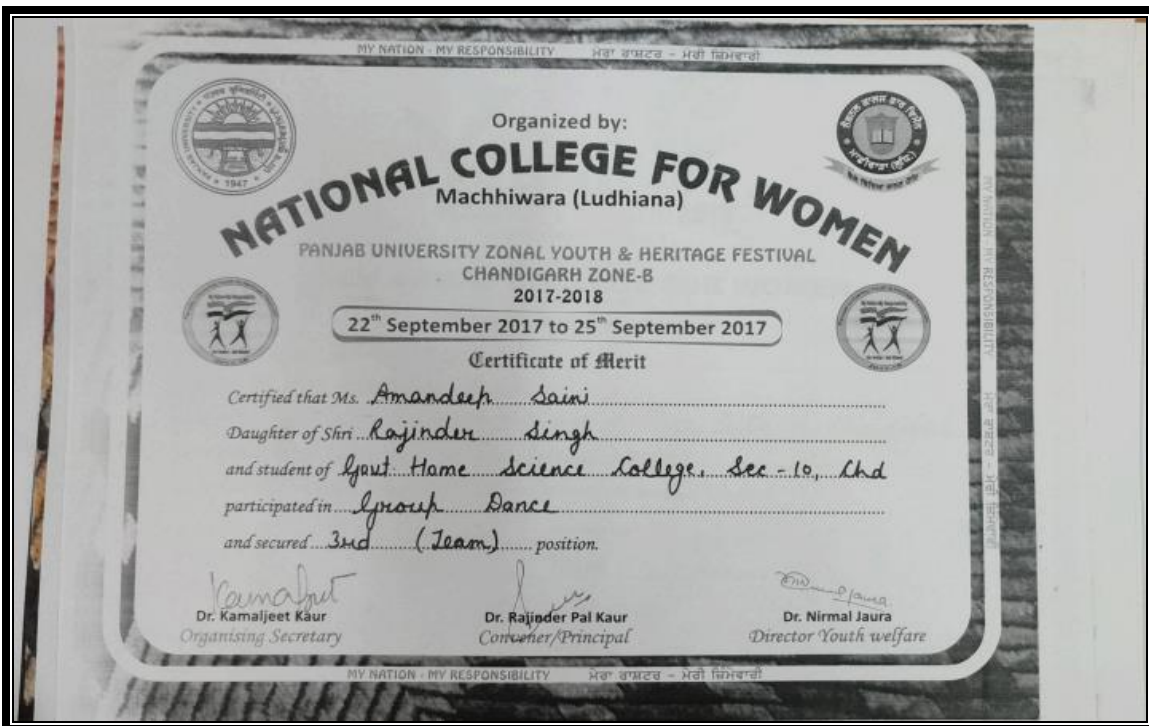 MY NATION - MY RESPONSIBILITY ਮੇਰਾ ਰਾਸ਼ਟਰ - ਮੇਰੀ ਜ਼ਿੰਮੇਵਾਰੀ
PANJAB UNIVERSITY
1947
Organized by:
NATIONAL COLLEGE FOR WOMEN
Machhiwara (Ludhiana)
PANJAB UNIVERSITY ZONAL YOUTH & HERITAGE FESTIVAL
CHANDIGARH ZONE-B
2017-2018
22th September 2017 to 25th September 2017
Certificate of Merit
Certified that Ms. Amandeep Saini
Daughter of Shri Rajinder Singh
and student of Govt. Home Science College, Sec - 10, Chd
participated in Group Dance
and secured 3rd (Team) position.
Dr. Kamaljeet Kaur
Organising Secretary
Dr. Rajinder Pal Kaur
Convener/Principal
Dr. Nirmal Jaura
Director Youth welfare
MY NATION - MY RESPONSIBILITY ਮੇਰਾ ਰਾਸ਼ਟਰ - ਮੇਰੀ ਜ਼ਿੰਮੇਵਾਰੀ
MY NATION - MY RESPONSIBILITY ਮੇਰਾ ਰਾਸ਼ਟਰ - ਮੇਰੀ ਜ਼ਿੰਮੇਵਾਰੀ